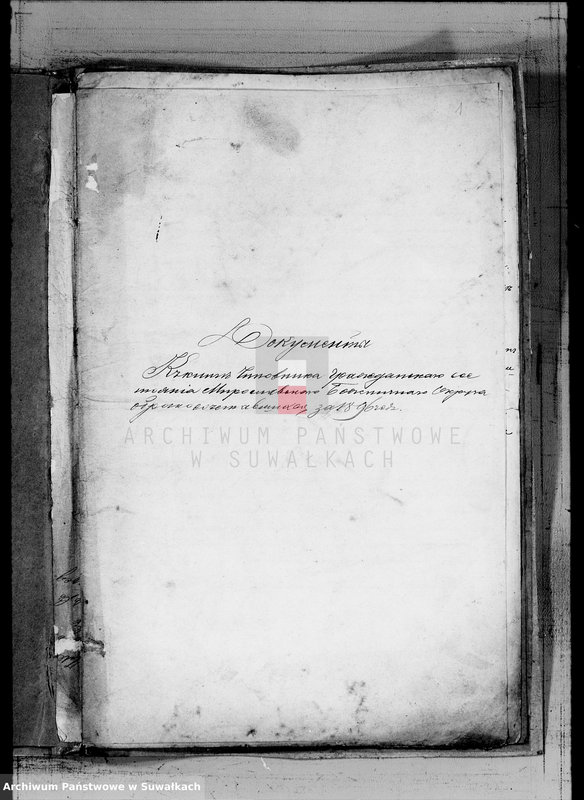 1
Документы
Къ книгѣ Чиновника Гражданскаго сос
тоянія Мирославскаго Божничнаго Округа
о бракосочетавшихся за 18 год.
ARCHIWUM PAŃSTWOWE
W SUWAŁKACH
Archiwum Państwowe w Suwałkach